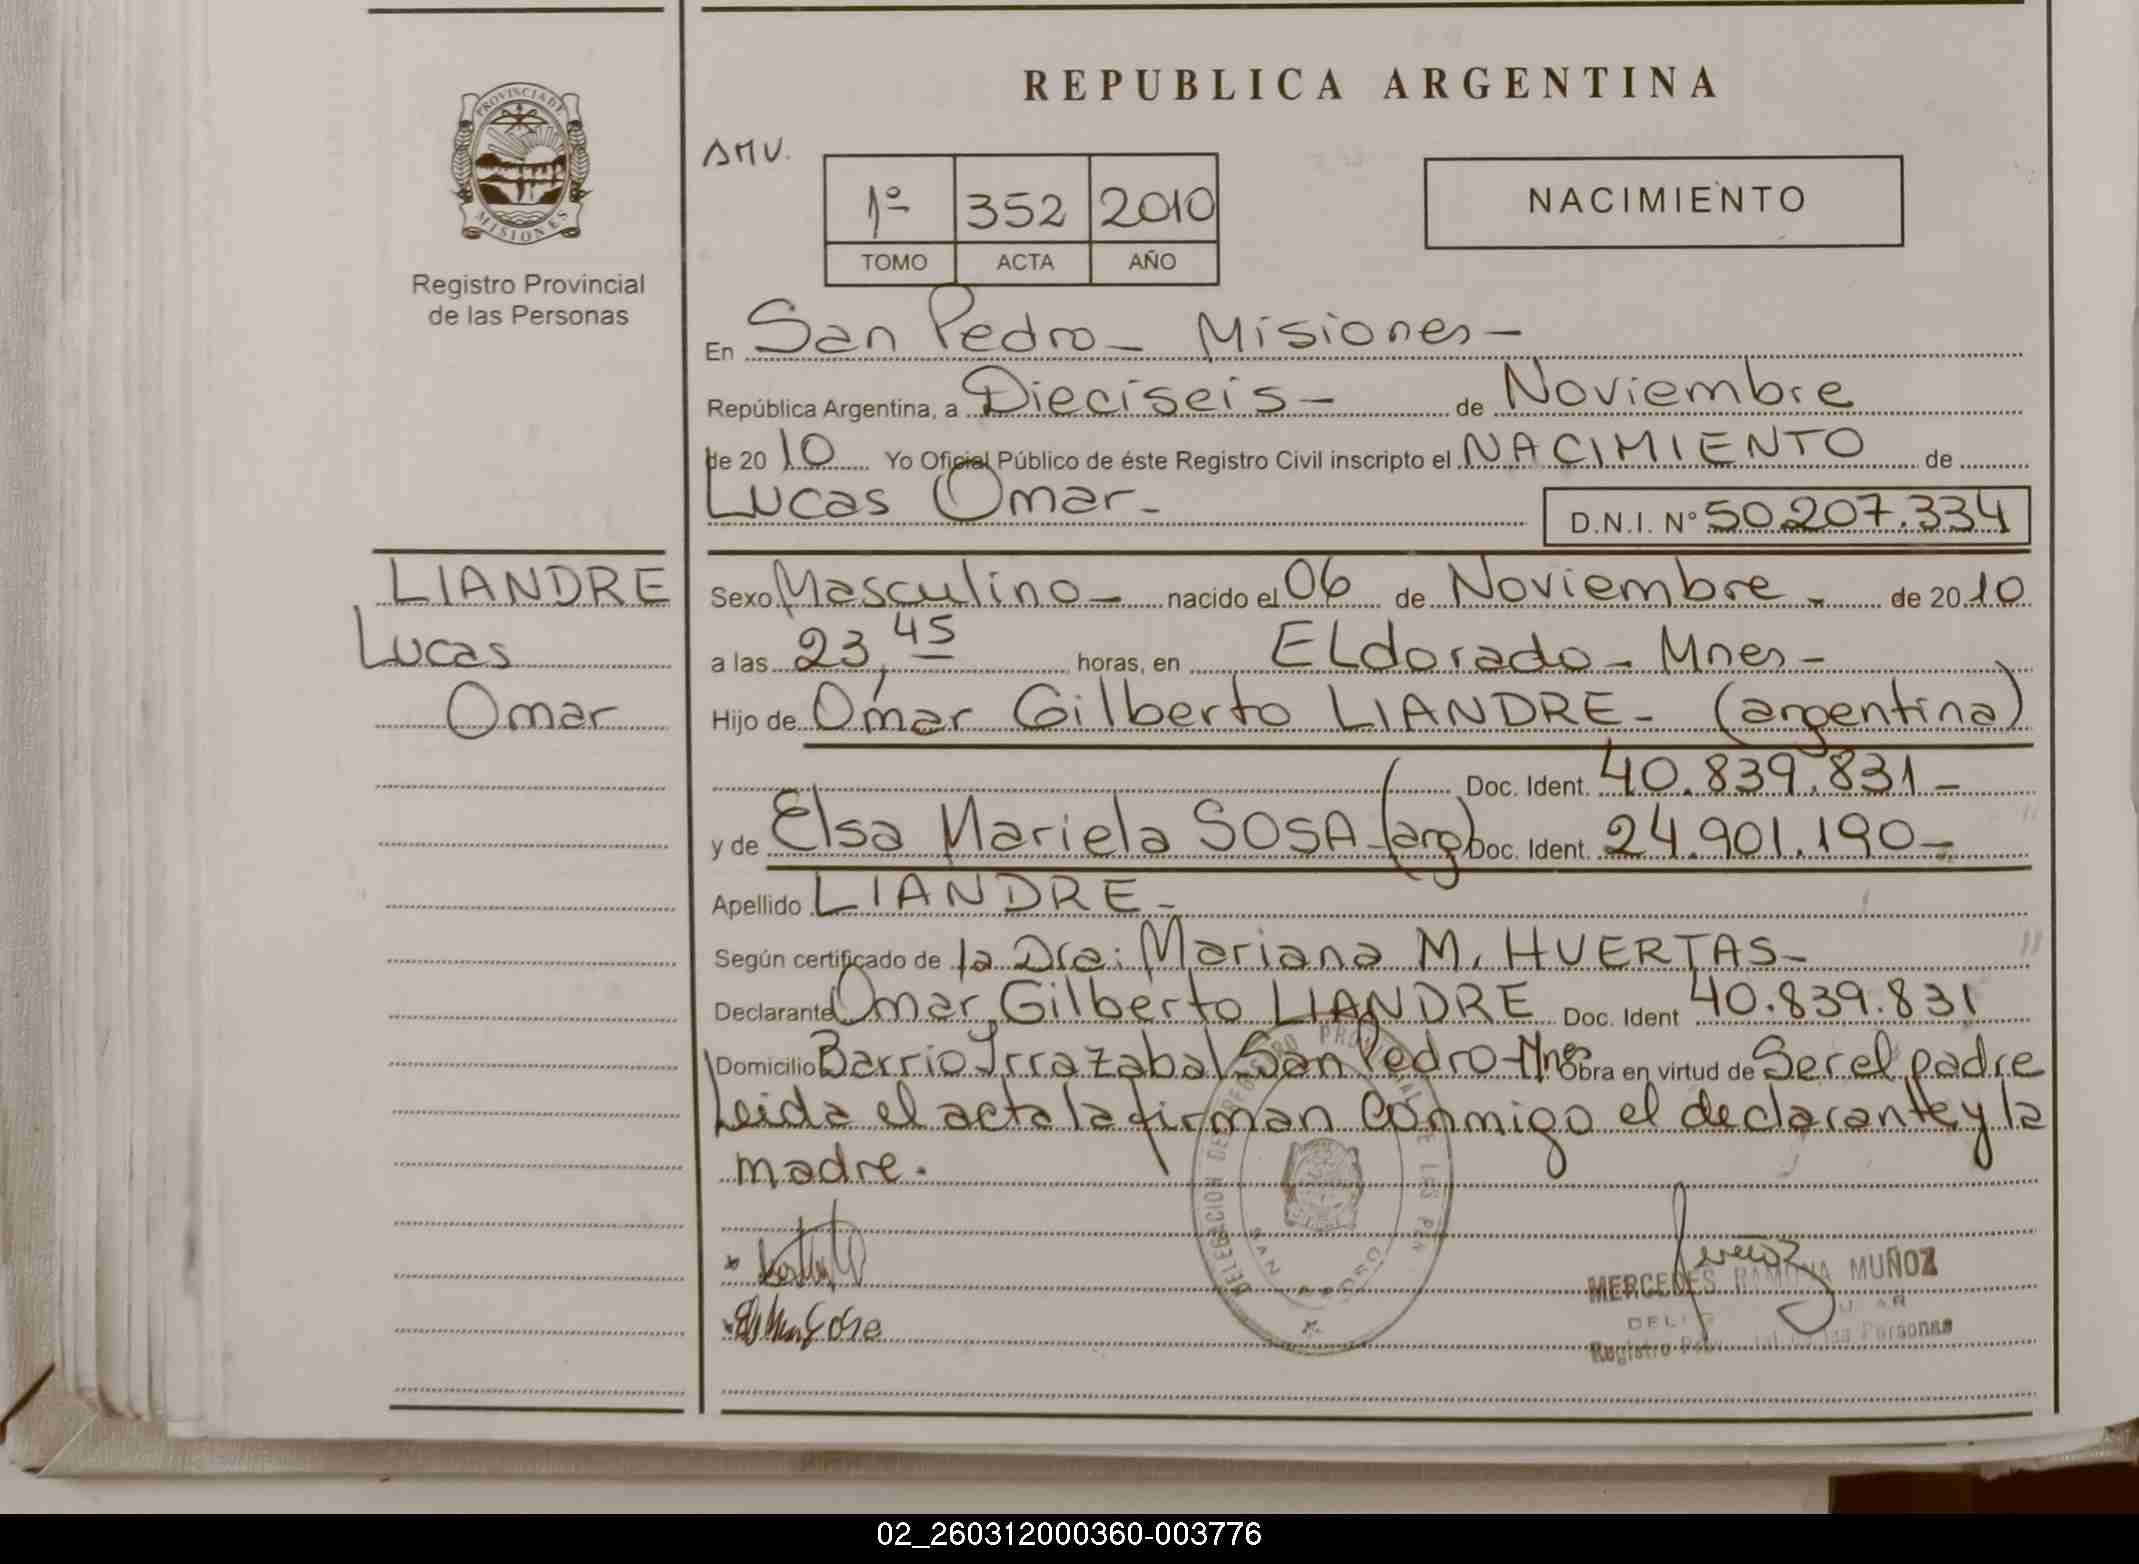 REPUBLICA ARGENTINA
PROVINCIA DE
MISIONES
Registro Provincial
de las Personas
AMV.
1º 352 2010
TOMO ACTA AÑO
NACIMIENTO
En San Pedro - Misiones -
República Argentina, a Dieciseis - de Noviembre
de 20 10 Yo Oficial Público de éste Registro Civil inscripto el NACIMIENTO de
Lucas Omar - D.N.I. Nº 50.207.334
LIANDRE
Lucas
Omar
Sexo Masculino - nacido el 06 de Noviembre - de 20 10
a las 23,45 horas, en ELdorado - Mnes -
Hijo de Omar Gilberto LIANDRE - (argentina)
Doc. Ident. 40.839.831 -
y de Elsa Mariela SOSA - (arg) Doc. Ident. 24.901.190 -
Apellido LIANDRE -
Según certificado de la Dra: Mariana M. HUERTAS -
Declarante Omar Gilberto LIANDRE Doc. Ident 40.839.831
Domicilio Barrio Irrazabal San Pedro - Mnes Obra en virtud de Ser el padre
Leida el acta la firman conmigo el declarante y la
madre.
DELEGACION DEL REGISTRO PROVINCIAL DE LAS PER
SAN PEDRO
Sosa
MERCEDES RAMONA MUÑOZ
Registro Provincial de las Personas
02_260312000360-003776